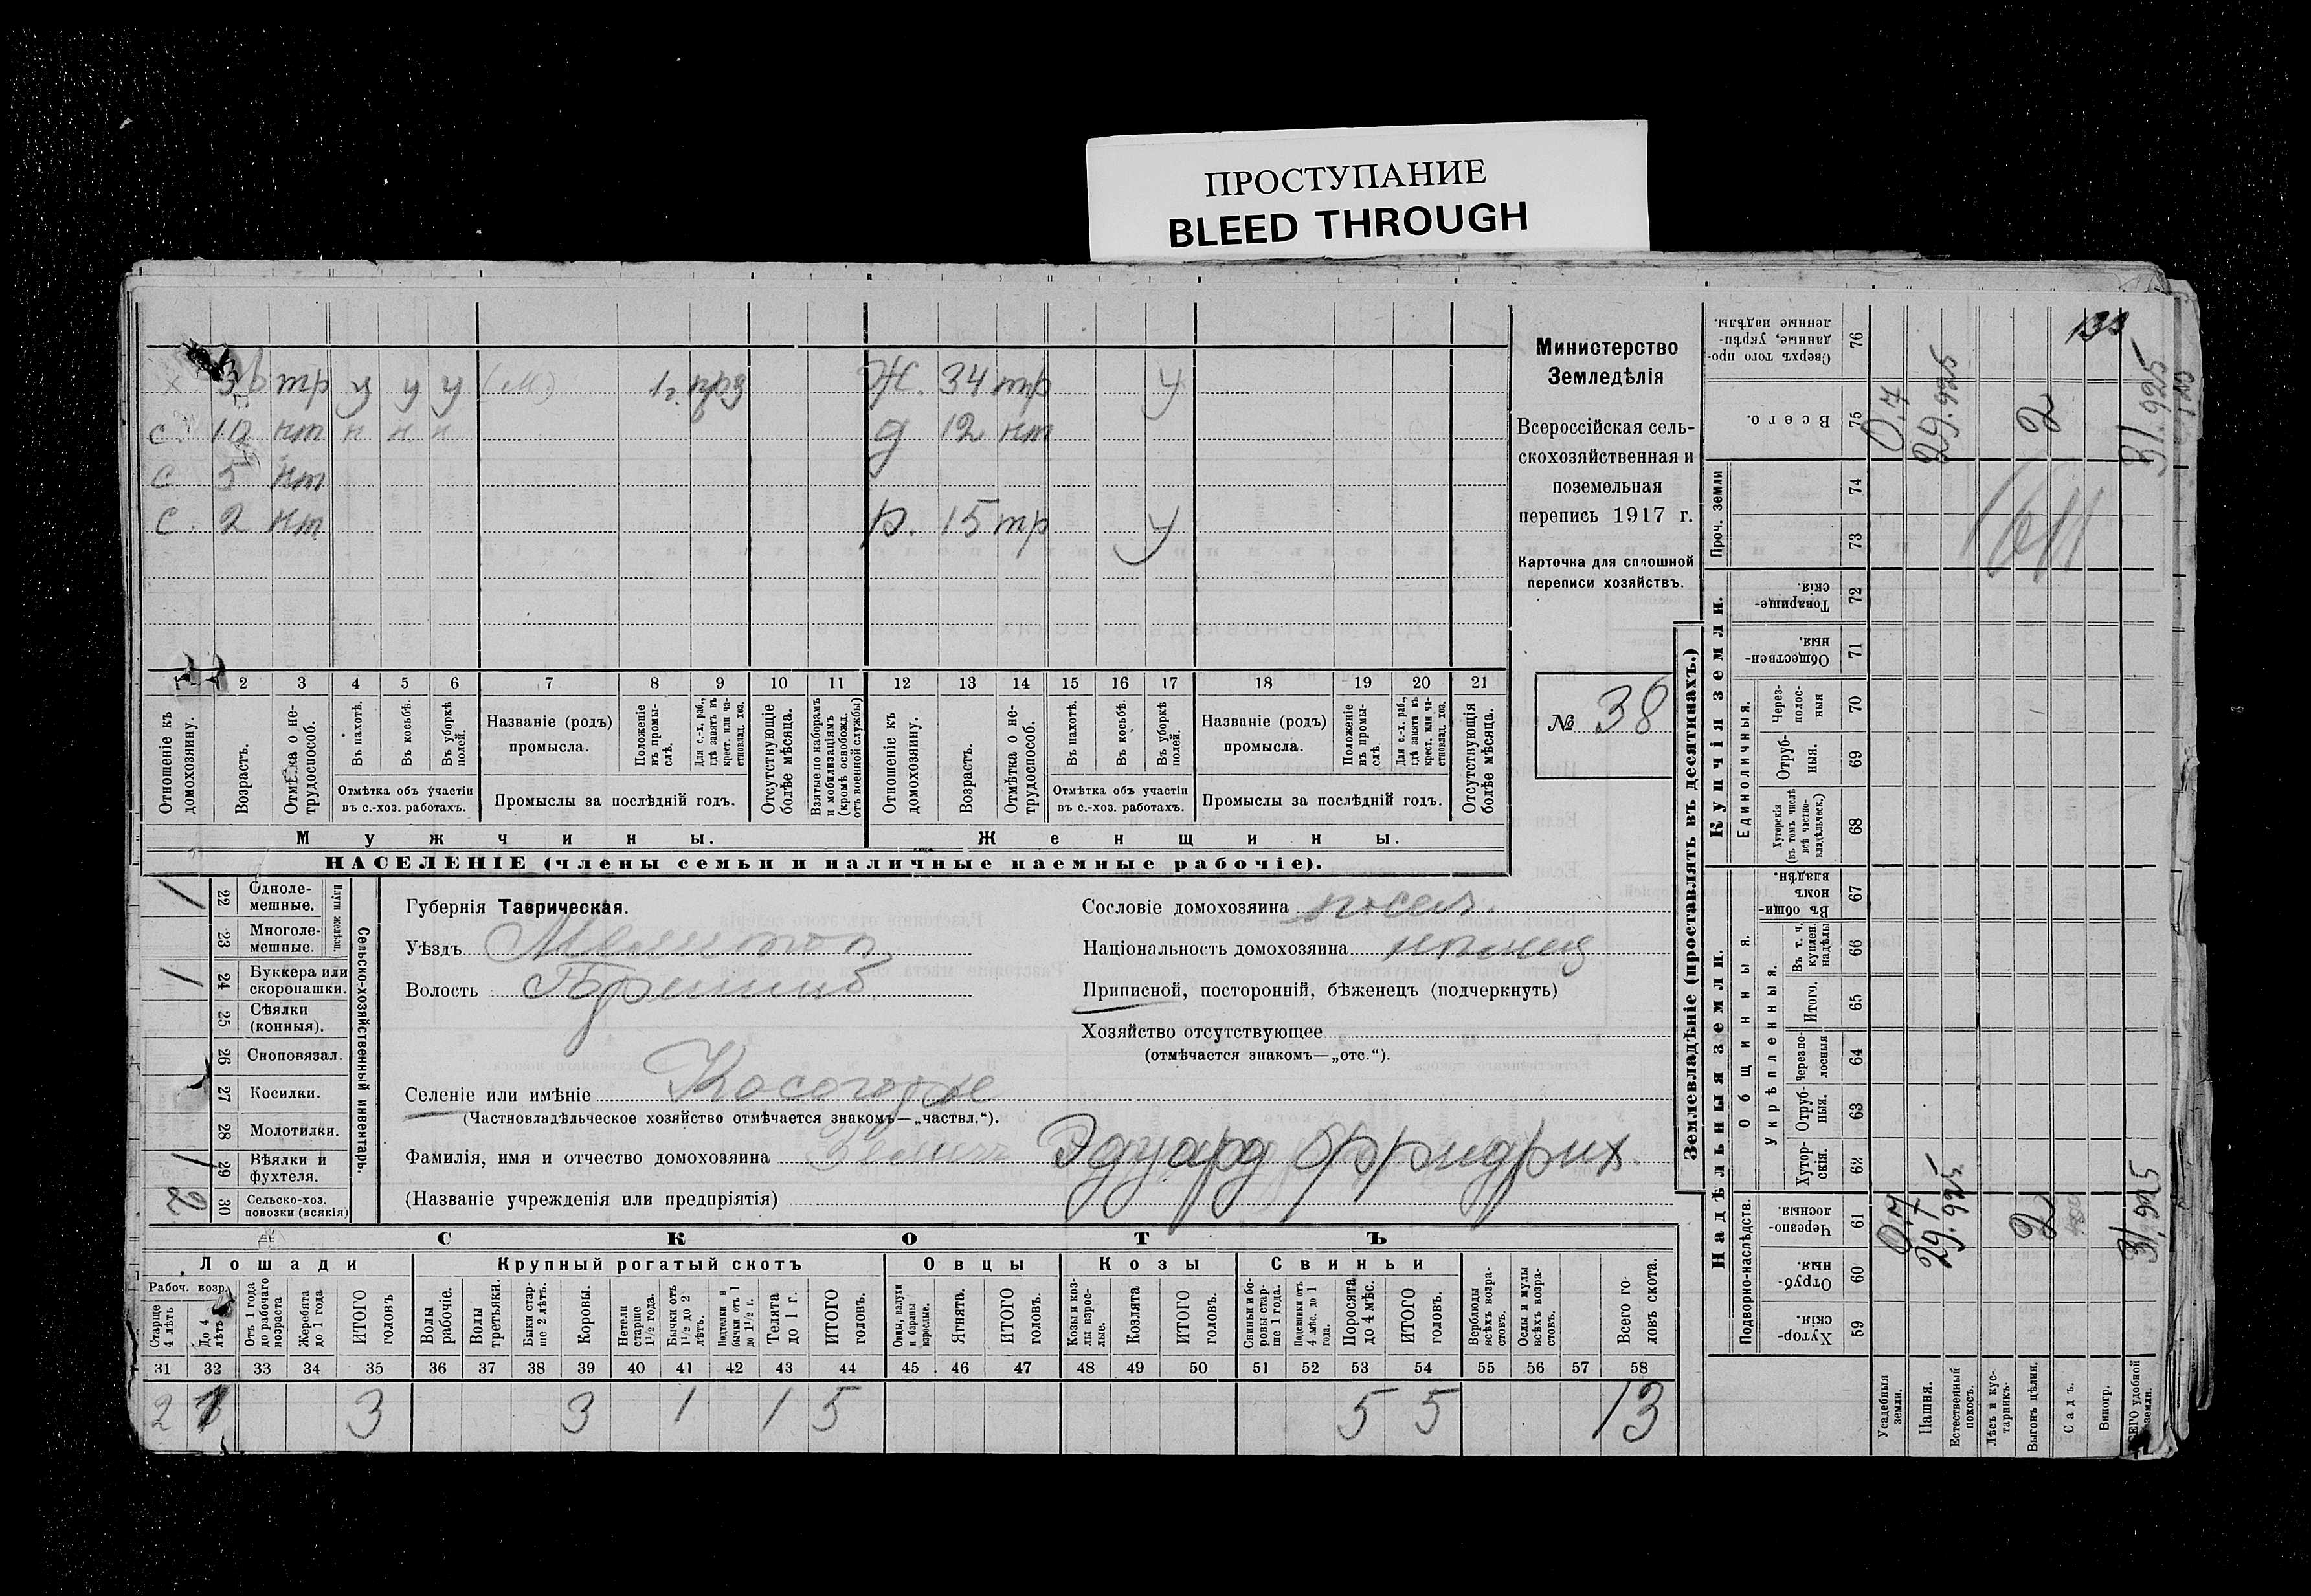 ПРОСТУПАНИЕ
BLEED THROUGH
х 36 тр у у у (м) 1г. Ж. 34 тр у
с. 10 нт н н н д 12 нт
с 5 нт
с. 2 нт р. 15 тр у
1 2 3 4 5 6 7 8 9 10 11 12 13 14 15 16 17 18 19 20 21
Отношеніе къ домохозяину.
Возрастъ.
Отмѣтка о не-трудоспособ.
Въ пахотѣ.
Въ косьбѣ.
Въ уборкѣ полей.
Отмѣтка объ участіи
въ с.-хоз. работахъ.
Названіе (родъ)
промысла.
Положеніе въ промы-слѣ.
Для с.-х. раб., гдѣ занятъ въ крест. или ча-стновлад. хоз.
Промыслы за послѣдній годъ.
Отсутствующіе болѣе мѣсяца.
Взятые по наборамъ и мобилизаціямъ (кромѣ освобожд. отъ военной службы)
Отношеніе къ домохозяину.
Возрастъ.
Отмѣтка о не-трудоспособ.
Въ пахотѣ.
Въ косьбѣ.
Въ уборкѣ полей.
Отмѣтка объ участіи
въ с.-хоз. работахъ.
Названіе (родъ)
промысла.
Положеніе въ промы-слѣ.
Для с.-х. раб., гдѣ занята въ крест. или ча-стновлад. хоз.
Промыслы за послѣдній годъ.
Отсутствующія болѣе мѣсяца.
Мужчины. Женщины.
НАСЕЛЕНІЕ (члены семьи и наличные наемные рабочіе).
Министерство
Земледѣлія
Всероссійская сель-
скохозяйственная и
поземельная
перепись 1917 г.
Карточка для сплошной
переписи хозяйствъ.
№ 38
Сельско-хозяйственный инвентарь.
Плуги желѣзн.
1 22 Одноле-мешные.
23 Многоле-мешные.
1 24 Буккера или скоропашки.
25 Сѣялки (конныя).
26 Сноповязал.
27 Косилки.
28 Молотилки.
1 29 Вѣялки и фухтеля.
2 30 Сельско-хоз. повозки (всякія)
Губернія Таврическая.
Уѣздъ Мелитоп
Волость
Селеніе или имѣніе Косогорье
(Частновладѣльческое хозяйство отмѣчается знакомъ—„частвл.“).
Фамилія, имя и отчество домохозяина Эдуард Фридрих.
(Названіе учрежденія или предпріятія)
Сословіе домохозяина посел.
Національность домохозяина немец
Приписной, посторонній, бѣженецъ (подчеркнуть)
Хозяйство отсутствующее
(отмѣчается знакомъ—„отс.“).
СКОТЪ
Лошади Крупный рогатый скотъ Овцы Козы Свиньи
Рабоч. возр.
Старше 4 лѣтъ
До 4 лѣтъ
Отъ 1 года до рабочаго возраста
Жеребята до 1 года
ИТОГО головъ
Волы рабочіе.
Волы третьяки.
Быки стар-ше 2 лѣтъ.
Коровы.
Нетели старше 1½ года.
Бычки отъ 1½ до 2 лѣтъ.
Подтелки и бычки отъ 1 до 1½ г.
Телята до 1 г.
ИТОГО головъ.
Овцы, валухи и бараны взрослые.
Ягнята.
ИТОГО головъ.
Козы и коз-лы взрос-лые.
Козлята
ИТОГО головъ.
Свиньи и бо-ровы стар-ше 1 года.
Подсвинки отъ 4 мѣс. до 1 года.
Поросята до 4 мѣс.
ИТОГО головъ.
Верблюды всѣхъ возра-стовъ.
Ослы и мулы всѣхъ возра-стовъ.
Всего го-ловъ скота.
31 32 33 34 35 36 37 38 39 40 41 42 43 44 45 46 47 48 49 50 51 52 53 54 55 56 57 58
2 1 3 3 1 1 5 5 5 13
Землевладѣніе (проставлять въ десятинахъ.)
Купчія земли.
Надѣльныя земли.
76 Сверхъ того про-данные, укрѣп-ленные надѣлы.
75 Всего.
Проч. земли
74
73
72 Товарище-скія.
71 Обществен-ныя.
Единоличныя.
70 Через-полос-ныя
69 Отруб-ныя.
68 Хуторскія (въ томъ числѣ всѣ частно-владѣльческ.)
67 Въ общи-номъ владѣн.
Общинныя.
Укрѣпленныя.
66 Въ т. ч. куплен. надѣлы
65 Итого.
64 Черезпо-лосныя
63 Отруб-ныя.
62 Хутор-скія.
Подворно-наслѣдств.
61 Черезпо-лосныя.
60 Отруб-ныя.
59 Хутор-скія.
Усадебныя земли.
Пашня.
Естественный покосъ.
Лѣсъ и кус-тарникъ.
Выгонъ цѣлин.
Садъ.
Виногр.
ВСЕГО удобной земли.
133
0.7 29.925 2 31.925
0.7 29.925 2 31.925